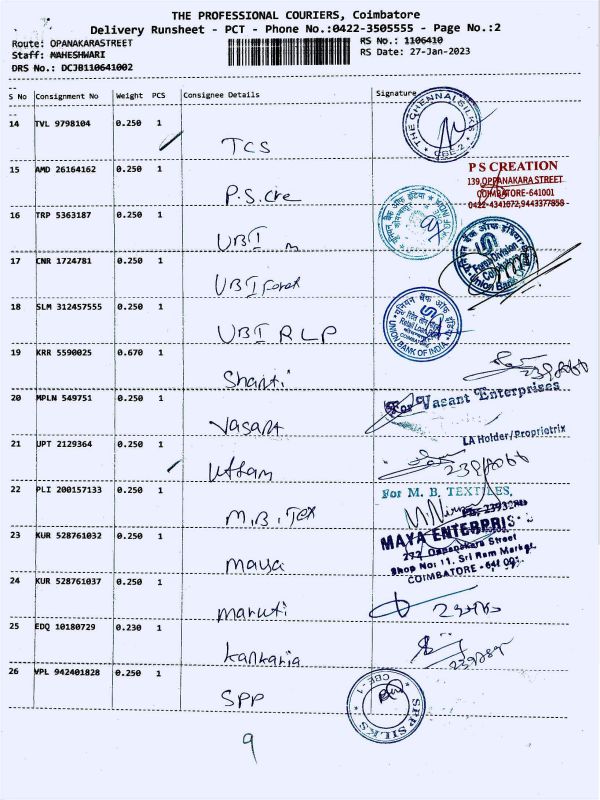 THE PROFESSIONAL COURIERS, Coimbatore
Delivery Runsheet - PCT - Phone No.:0422-3505555 - Page No.:2
Route: OPANAKARASTREET
RS No.: 1106410
Staff: MAHESHWARI
RS Date: 27-Jan-2023
DRS No.: DCJB110641002
S No Consignment No Weight PCS Consignee Details Signature
14 TVL 9798104 0.250 1
TCS
THE CHENNAI SILKS
CBE-2
15 AMD 26164162 0.250 1
P.S.Cre
P S CREATION
139, OPPANAKARA STREET
COIMBATORE-641001
0422-4341672,9443377858
16 TRP 5363187 0.250 1
UBI m
17 CNR 1724781 0.250 1
UBI Forex
Fund Division
Coimbatore
Union Bank
18 SLM 312457555 0.250 1
UBI RLP
यूनियन बैंक ऑफ इंडिया
UNION BANK OF INDIA
19 KRR 5590025 0.670 1
Shanti
20 MPLN 549751 0.250 1
Vasant
For Vasant Enterprises
LA Holder/Proprietrix
21 UPT 2129364 0.250 1
Uttam
22 PLI 200157133 0.250 1
M.B.Tex
For M. B. TEXTILES,
23 KUR 528761032 0.250 1
maya
MAYA ENTERPRIS
272, Oppanakara Street
Shop No: 11, Sri Ram Market,
COIMBATORE - 641 001.
24 KUR 528761037 0.250 1
maruti
25 EDQ 10180729 0.230 1
Kankaria
26 VPL 942401828 0.250 1
SPP
SPP SILKS
CBE-1
9